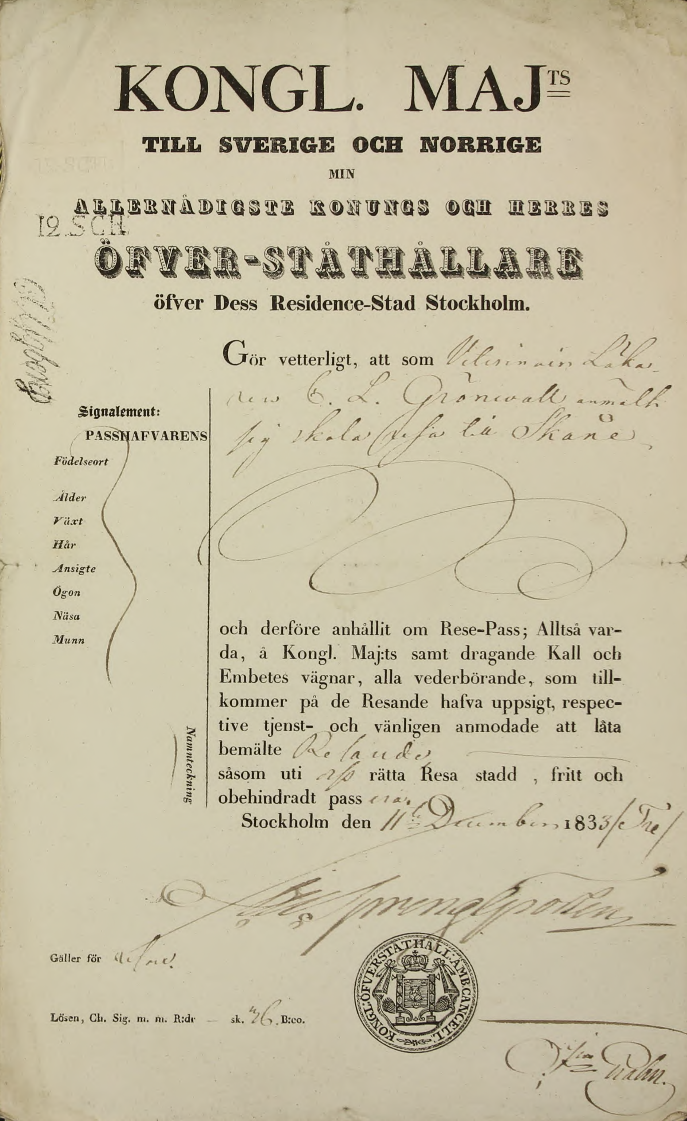 KONGL. MAJTS
TILL SVERIGE OCH NORRIGE
MIN
ALLERNÅDIGSTE KONUNGS OCH HERRES
12.SCH.
ÖFVER-STÅTHÅLLARE
öfver Dess Residence-Stad Stockholm.
Gör vetterligt, att som Läka-
ren C. L. Grönwall anmält
sig skola resa till Skåne
Signalement:
PASSHAFVARENS
Födelseort
Ålder
Växt
Hår
Ansigte
Ögon
Näsa
Munn
Namnteckning
och derföre anhållit om Rese-Pass; Alltså var-
da, å Kongl. Maj:ts samt dragande Kall och
Embetes vägnar, alla vederbörande, som till-
kommer på de Resande hafva uppsigt, respec-
tive tjenst- och vänligen anmodade att låta
bemälte Resande,
såsom uti rätta Resa stadd , fritt och
obehindradt pass
Stockholm den 11 December 1833/Tre/
Gäller för
Lösen, Ch. Sig. m. m. R:dr — sk. B:co.
KONGL: ÖFVERSTÅTHÅLL: AMB. CANCELI.